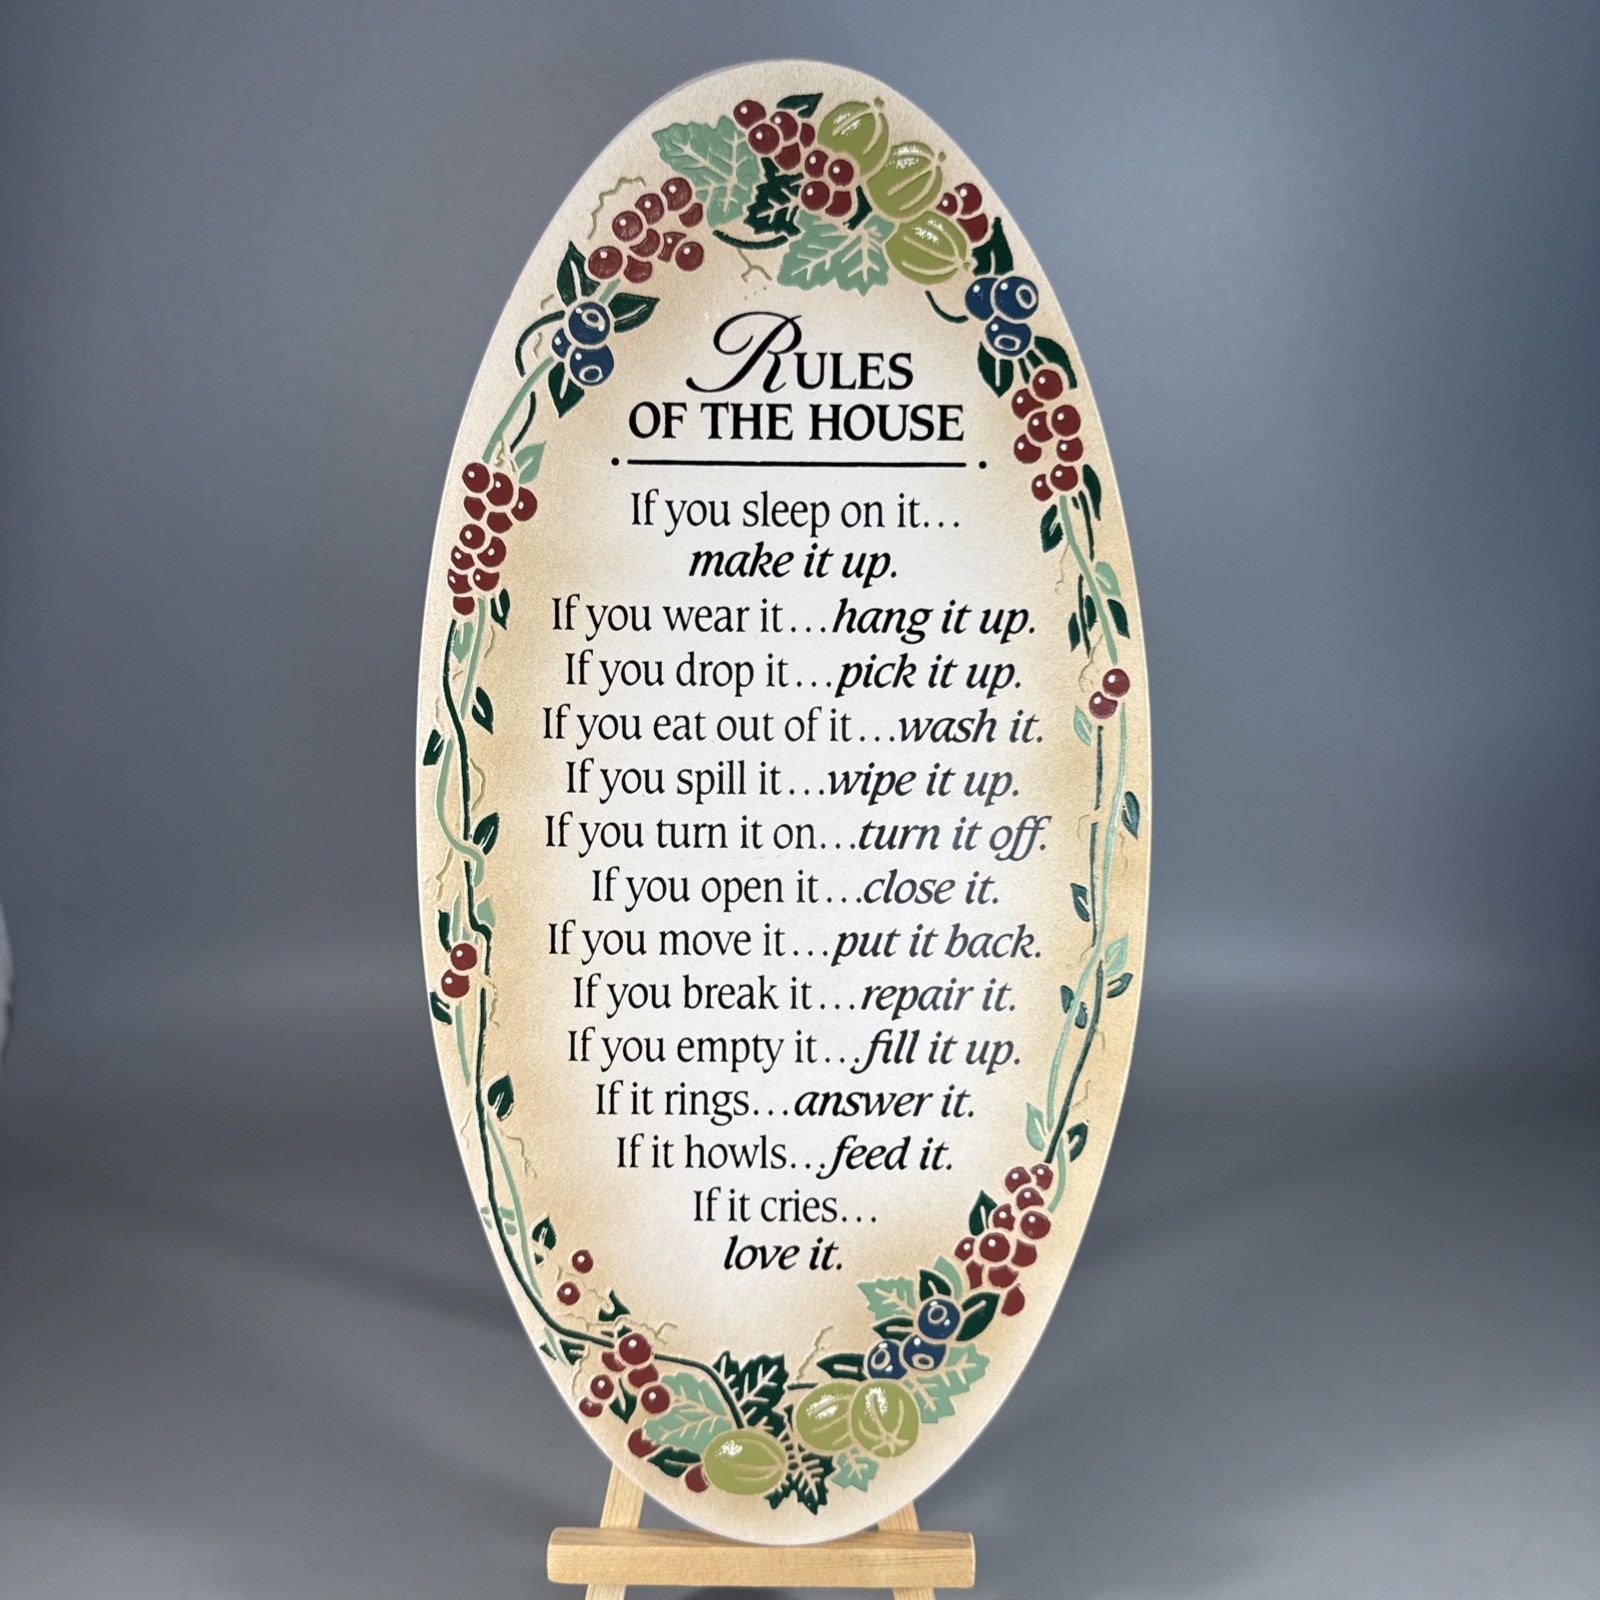 RULES
OF THE HOUSE
If you sleep on it...
make it up.
If you wear it...hang it up.
If you drop it...pick it up.
If you eat out of it...wash it.
If you spill it...wipe it up.
If you turn it on...turn it off.
If you open it...close it.
If you move it...put it back.
If you break it...repair it.
If you empty it...fill it up.
If it rings...answer it.
If it howls...feed it.
If it cries...
love it.